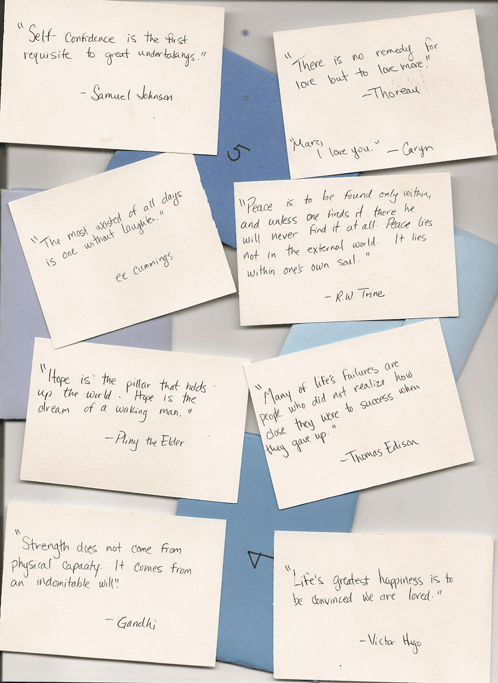 "Self-Confidence is the first
requisite to great undertakings."
- Samuel Johnson
"There is no remedy for
love but to love more."
-Thoreau
"Marc,
I love you." - Caryn
5
"The most wasted of all days
is one without laughter."
ee cummings
"Peace is to be found only within,
and unless one finds it there he
will never find it at all. Peace lies
not in the external world. It lies
within one's own soul."
- R.W. Trine
"Hope is the pillar that holds
up the world. Hope is the
dream of a waking man."
-Pliny the Elder
"Many of life's failures are
people who did not realize how
close they were to success when
they gave up."
-Thomas Edison
"Strength does not come from
physical capacity. It comes from
an indomitable will"
- Gandhi
4
"Life's greatest happiness is to
be convinced we are loved."
-Victor Hugo